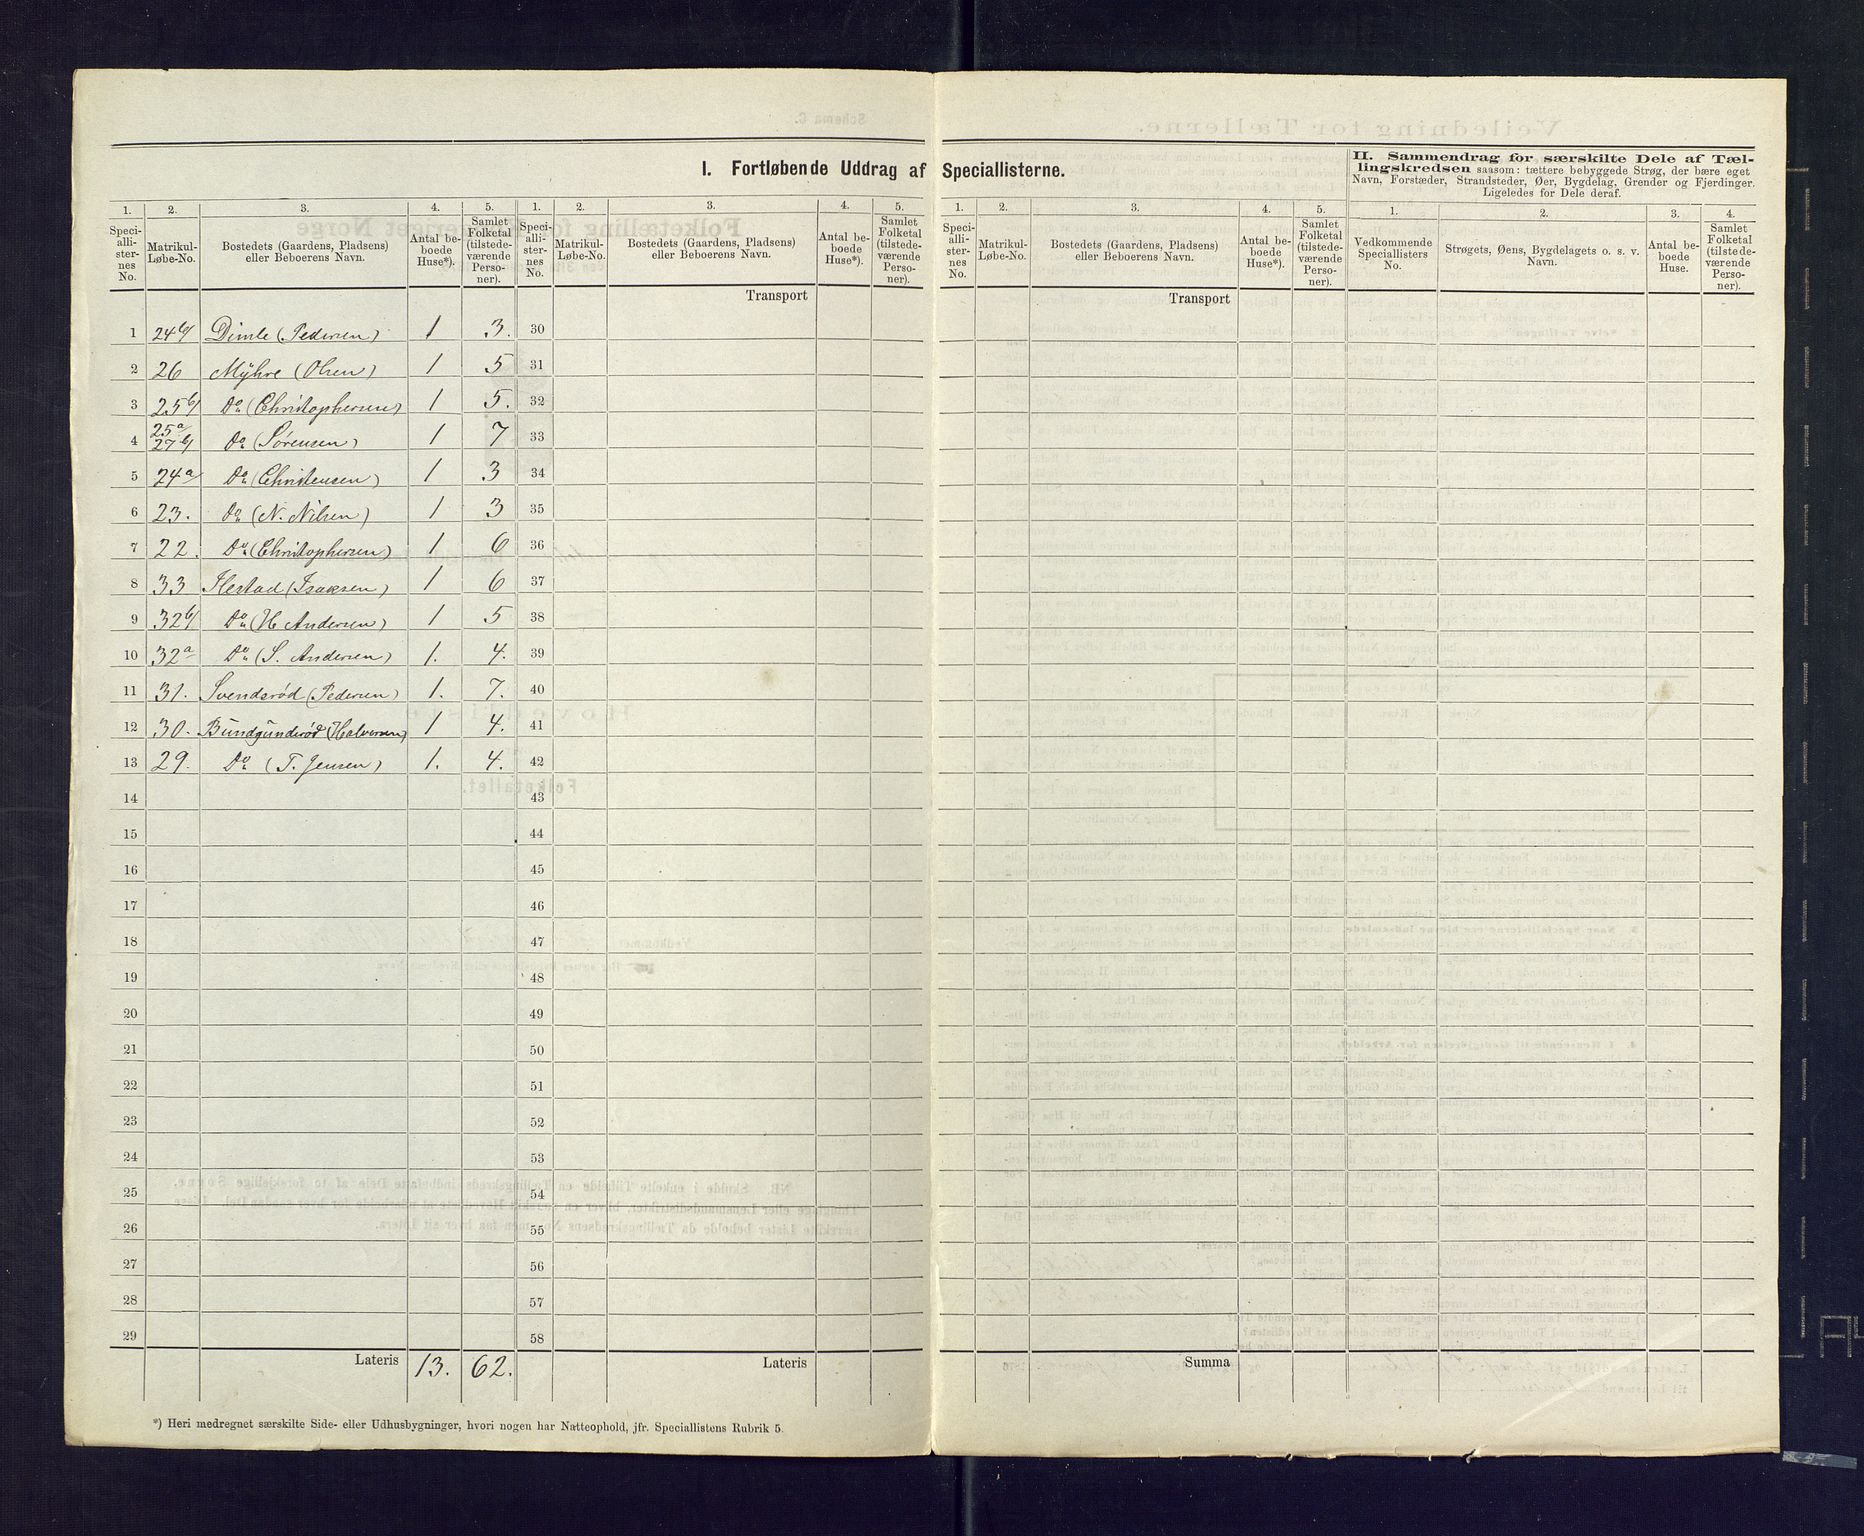 I. Fortløbende Uddrag af Speciallisterne.
II. Sammendrag for særskilte Dele af Tæl-
lingskredsen saasom: tættere bebyggede Strøg, der bære eget
Navn, Forstæder, Strandsteder, Øer, Bygdelag, Grender og Fjerdinger.
Ligeledes for Dele deraf.
1. 2. 3. 4. 5. 1. 2. 3. 4. 5. 1. 2. 3. 4. 5. 1. 2. 3. 4.
Speci-
allli-
ster-
nes
No.
Matrikul-
Løbe-No.
Bostedets (Gaardens, Pladsens)
eller Beboerens Navn.
Antal be-
boede
Huse*).
Samlet
Folketal
(tilstede-
værende
Perso-
ner).
Speci-
alli-
ster-
nes
No.
Matrikul-
Løbe-No.
Bostedets (Gaardens, Pladsens)
eller Beboerens Navn.
Antal be-
boede
Huse*).
Samlet
Folketal
(tilstede-
værende
Perso-
ner).
Speci-
alli-
ster-
nes
No.
Matrikul-
Løbe-No.
Bostedets (Gaardens, Pladsens)
eller Beboerens Navn.
Antal be-
boede
Huse*).
Samlet
Folketal
(tilstede-
værende
Perso-
ner).
Vedkommende
Speciallisters
No.
Strøgets, Øens, Bygdelagets o. s. v.
Navn.
Antal be-
boede
Huse.
Samlet
Folketal
(tilstede-
værende
Perso-
ner).
Transport Transport
1 24b/ Dimle (Pedersen) 1 3. 30
2 26 Myhre (Olsen) 1 5 31
3 25b/ Do (Christophersen) 1 5. 32
4 25a 27b/ Do (Sørensen) 1 7 33
5 24a Do (Christensen) 1 3 34
6 23. Do (N. Nilsen) 1 3 35
7 22. Do (Christophersen) 1 6 36
8 33 Ilestad (Isaksen) 1 6 37
9 32b/ Do (H Andersen) 1 5 38
10 32a Do (S. Andersen) 1. 4. 39
11 31. Svendsrød (Pedersen) 1. 7. 40
12 30. Bundgunderød (Halversen) 1 4. 41
13 29. Do (T. Jensen) 1. 4. 42
14 43
15 44
16 45
17 46
18 47
19 48
20 49
21 50
22 51
23 52
24 53
25 54
26 55
27 56
28 57
29 58
Lateris 13. 62. Lateris Summa
*) Heri medregnet særskilte Side- eller Udhusbygninger, hvori nogen har Natteophold, jfr. Speciallistens Rubrik 5.